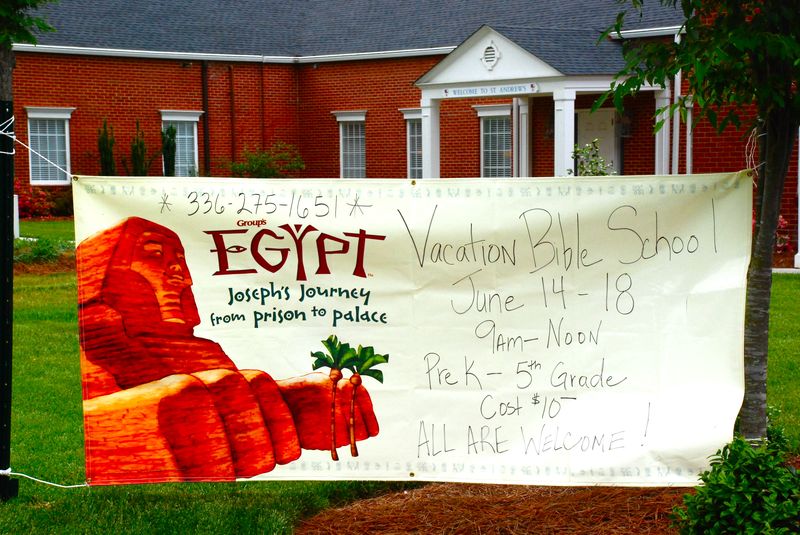 WELCOME TO ST ANDREWS
* 336-275-1651 *
Group's
EGYPT™
Joseph's Journey
from prison to palace
Vacation Bible School!
June 14-18
9am-Noon
Pre K - 5th Grade
Cost $10-
ALL ARE WELCOME!